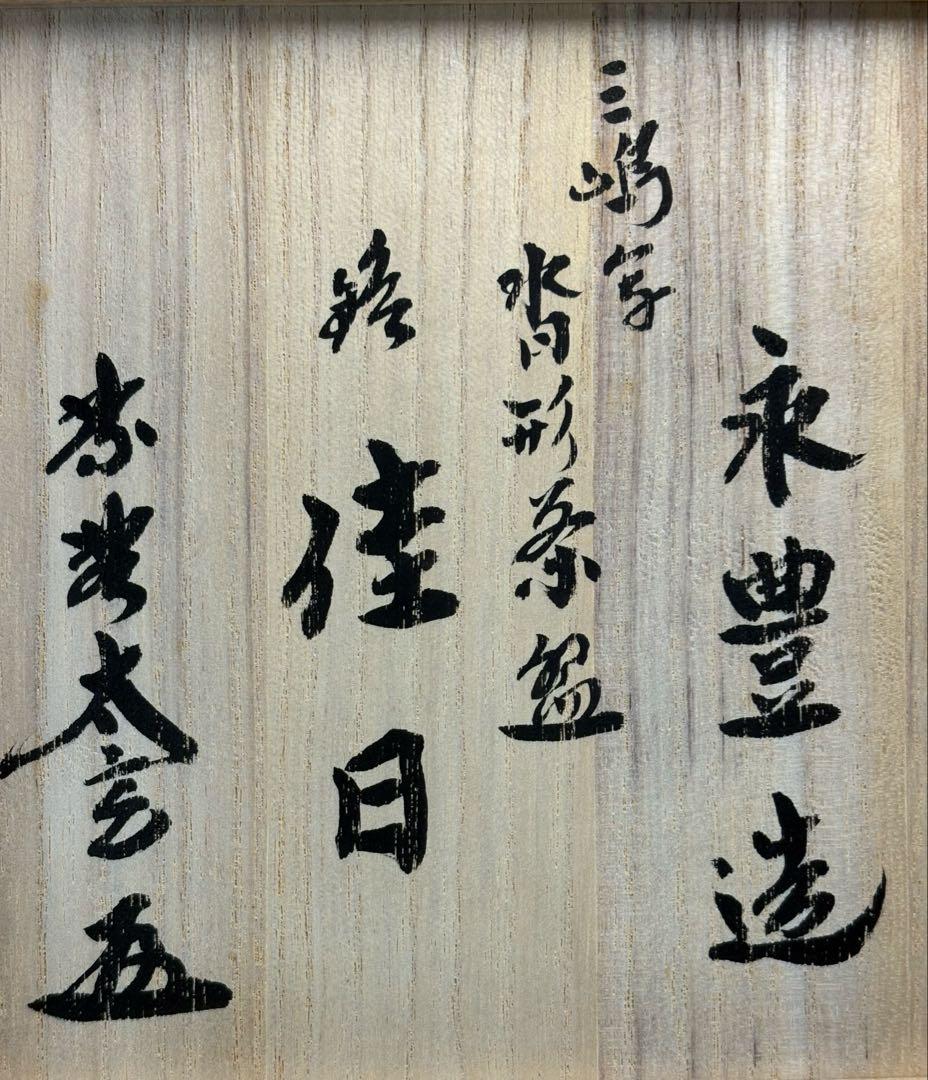 永豊造
三嶋写
沓形茶盌
銘 佳日
紫野太玄